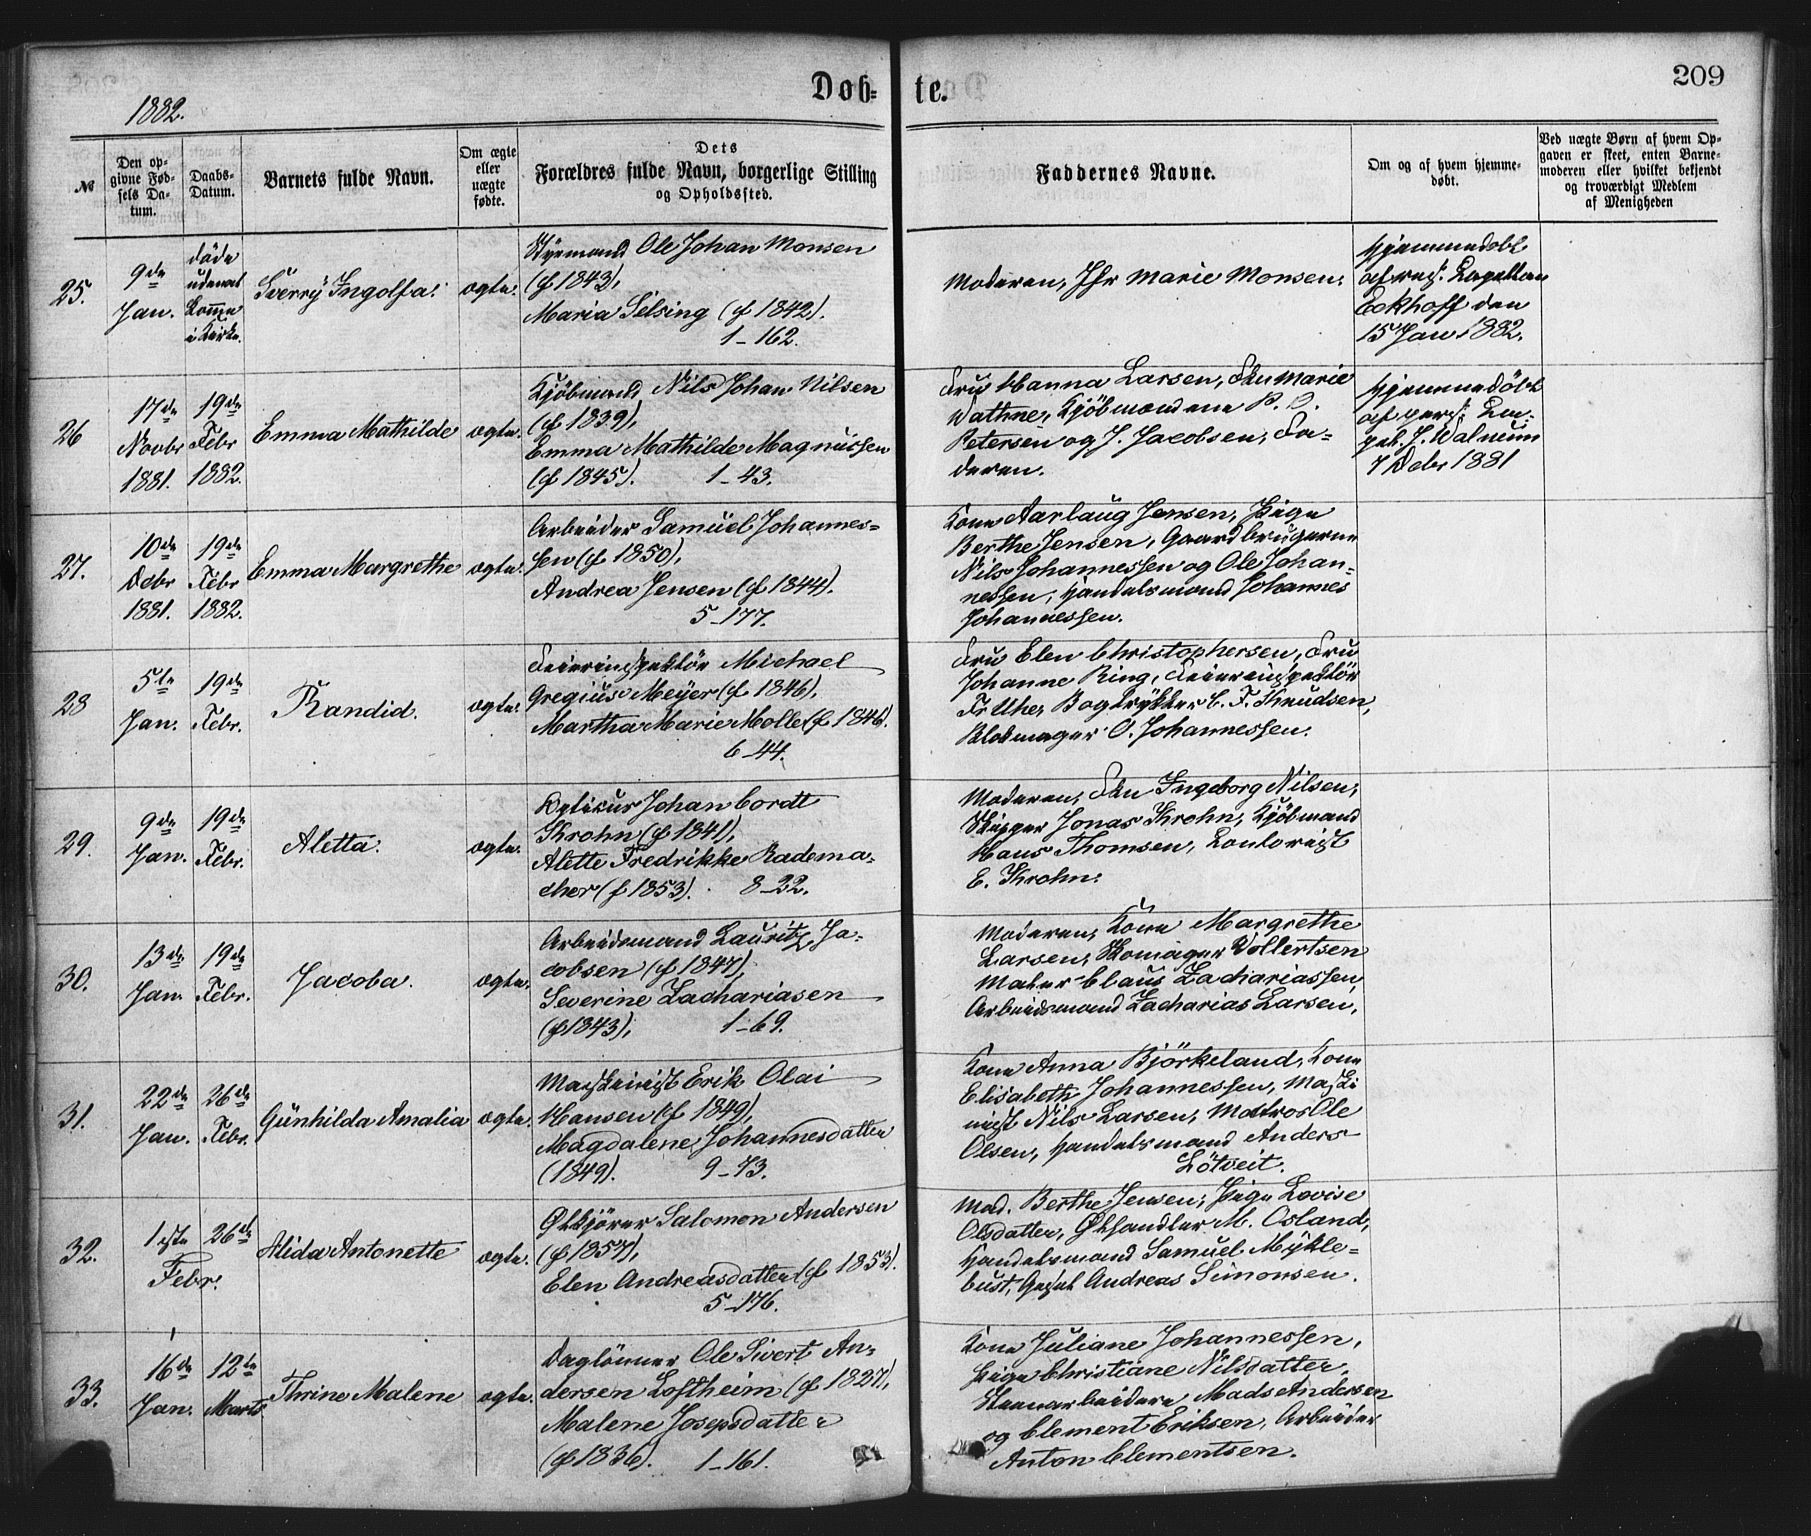 209
Døb- te.
1882.
№
Den op-
givne Fød-
sels Da-
tum.
Daabs-
Datum.
Barnets fulde Navn.
Om ægte
eller
uægte
fødte.
Dets
Forældres fulde Navn, borgerlige Stilling
og Opholdssted.
Faddernes Navne.
Om og af hvem hjemme-
døbt.
Ved uægte Børn af hvem Op-
gaven er skeet, enten Barne-
moderen eller hvilket bekjendt
og troværdigt Medlem
af Menigheden
25.
9de
Jan.
døde
uden at
komme
i Kirke.
Sverry Ingolfa.
ægte.
Styrmand Ole Johan Monsen
(f 1843),
Maria Selsing (f 1842).
1-162.
Moderen, Jfr Marie Monsen.
Hjemmedøbt
af res. Kapellan
Eckhoff den
15 Jan 1882.
26
17de
Novbr
1881.
19de
Febr
1882.
Emma Mathilde
ægte.
Kjøbmand Nils Johan Nilsen
(f 1839),
Emma Mathilde Magnussen
(f 1845). 1-43.
Fru Hanna Larsen, Frk Marie
Wathne, Kjøbmændene P. O.
Petersen og J. Jacobsen, Fa-
deren.
Hjemmedøbt
af pers. Ka-
pel. J. Walnum
7 Debr 1881
27.
10de
Debr
1881.
19de
Febr
1882.
Emma Margrethe
ægte.
Arbeider Samuel Johannes-
sen (f 1850),
Andrea Jensen (f 1844).
5-177.
Kone Aarlaug Jensen, Pige
Berthe Jensen, Gaardbrugerne
Nils Johannessen og Ole Johan-
nessen, Handelsmand Johannes
Johannessen.
28
5te
Jan.
19de
Febr.
Randid.
ægte.
Feierinspektør Michael
Gregius Meyer (f 1846),
Martha Marie Molle (f 1846).
6-44.
Fru Elen Christophersen, Fru
Johanne Ring, Feierinspektør
Frithe, Bogtrykker C. F. Knudsen,
Blokmager O. Johannessen.
29.
9de
Jan.
19de
Febr.
Aletta.
ægte.
Opticus Johan Cordt
Krohn (f 1841),
Alette Fredrikke Radema-
cher (f 1853). 8-22.
Moderen, Frk Ingeborg Nilsen,
Skipper Jonas Krohn, Kjøbmand
Hans Thomsen, Kontorist
E. Krohn.
30.
13de
Jan.
19de
Febr.
Jacoba.
ægte.
Arbeidsmand Lauritz Ja-
cobsen (f 1847),
Severine Zachariasen
(f 1843), 1-69.
Moderen, Kone Margrethe
Larsen, Skomager Wollertsen
Maler Claus Zachariassen,
Arbeidsmand Zacharias Larsen.
31.
22de
Jan.
26de
Febr.
Gunhilda Amalia
ægte.
Maskinist Erik Olai
Hansen (f 1849),
Magdalene Johannesdatter
(1849). 9-73.
Kone Anna Björkeland, Kone
Elisabeth Johannessen, Maski
nist Nils Larsen, Matros Ole
Olsen, Handelsmand Anders
Lötveit.
32.
1ste 26de
Febr.
Alida Antonette
ægte.
Ølkjører Salomon Andersen
(f 1857),
Elen Andreasdatter (f 1853).
5-176.
Mad. Berthe Jensen, Pige Lovise
Olsdatter, Ølhandler M. Osland,
Handelsmand Samuel Mykle-
bust, Gesel Andreas Simonsen.
33.
16de
Jan.
12te
Marts
Thrine Malene
ægte.
Dagløner Ole Sivert An-
dersen Loftheim (f 1827),
Malene Josepsdatter
(f 1836). 1-161.
Kone Juliane Johannessen,
Pige Christiane Nilsdatter,
Stenarbeidere Mads Andersen
og Clement Eriksen, Arbeider
Anton Clementsen.